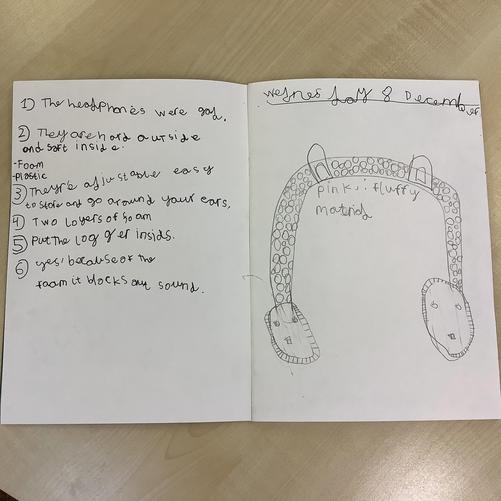 1) The headphones were god.
2) They are hard outside
and soft inside.
-Foam
-Plastic
3) They're adjustable easy
to store and go around your ears.
4) Two layers of foam
5) Put the logger inside.
6) yes! because of the
foam it blocks out sound.
Wednesday 8 December
pink : fluffy
material